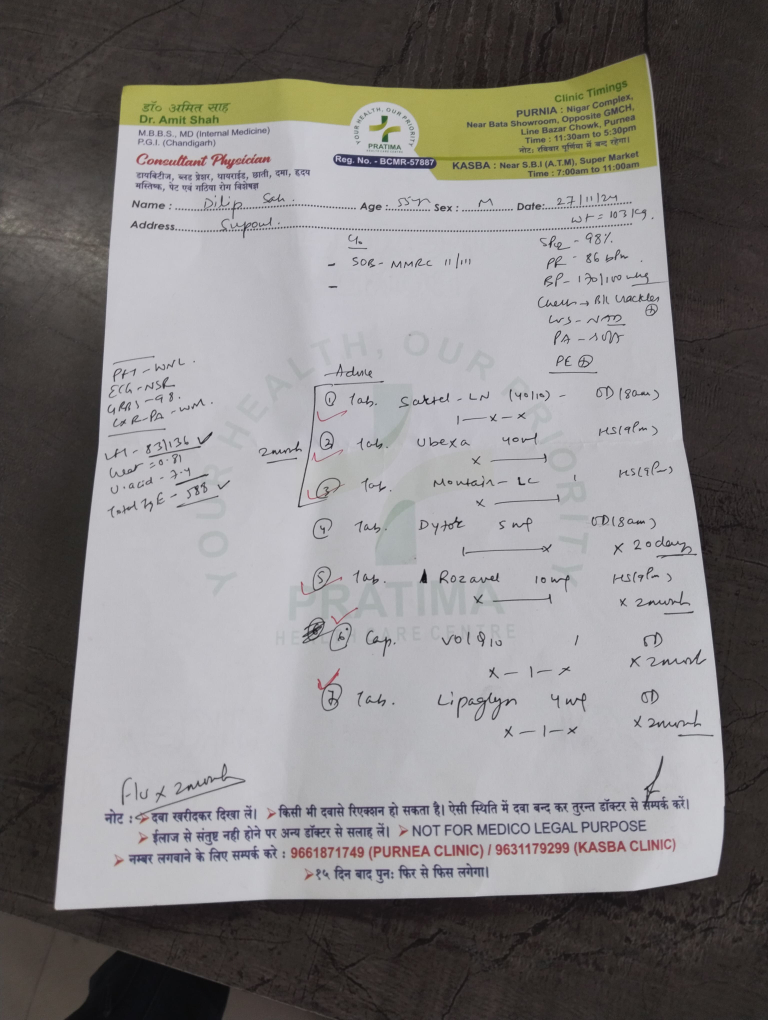 डॉ० अमित साह
Dr. Amit Shah
M.B.B.S., MD (Internal Medicine)
P.G.I. (Chandigarh)
Consultant Physician
डायबिटीज, ब्लड प्रेशर, थायराईड, छाती, दमा, हृदय
मस्तिष्क, पेट एवं गठिया रोग विशेषज्ञ
YOUR HEALTH, OUR PRIORITY
PRATIMA
HEALTHCARE CENTRE
Reg. No. - BCMR-57887
Clinic Timings
PURNIA : Nigar Complex,
Near Bata Showroom, Opposite GMCH,
Line Bazar Chowk, Purnea
Time : 11:30am to 5:30pm
नोट: रविवार पूर्णिया में बन्द रहेगा।
KASBA : Near S.B.I (A.T.M), Super Market
Time : 7:00am to 11:00am
Name : Dilip Sah. Age : 55yr Sex : M Date: 27/11/24
Address Supoul. wt = 103 kg.
C/o
- SOB - MMRC II/III
-
SPO2 - 98%
PR - 86 bpm
BP - 170/100 mmHg
Chest → B/L Crackles ⊕
CVS - NAD
PA - Soft
PE ⊕
PFT - WNL.
ECG - NSR
GRBS - 98.
CXR-PA - WNL.
83/136 ✓
Creat = 0.81
U. acid - 7.4
Total IgE - 588 ✓
Advice
① Tab. Sartel-LN (40/10) - OD (8am)
1-x-x
2month
② Tab. Ubexa 40mg HS (9pm)
x
③ Tab. Montain-LC 1 HS (9pm)
x
④ Tab. Dytor 5mg OD (8am)
x
x 20days
⑤ Tab. Rozavel 10mg HS (9pm)
x
x 2month
⑥ Cap. Vol Q10 1 OD
x-1-x
x 2month
⑦ Tab. Lipaglyn 4mg OD
x-1-x
x 2month
F/u x 2month
YOUR HEALTH, OUR PRIORITY
PRATIMA
HEALTHCARE CENTRE
नोट : ➢ दवा खरीदकर दिखा लें। ➢ किसी भी दवासे रिएक्शन हो सकता है। ऐसी स्थिति में दवा बन्द कर तुरन्त डॉक्टर से सम्पर्क करें।
➢ ईलाज से संतुष्ट नही होने पर अन्य डॉक्टर से सलाह लें। ➢ NOT FOR MEDICO LEGAL PURPOSE
➢ नम्बर लगबाने के लिए सम्पर्क करे : 9661871749 (PURNEA CLINIC) / 9631179299 (KASBA CLINIC)
➢ १५ दिन बाद पुनः फिर से फिस लगेगा।